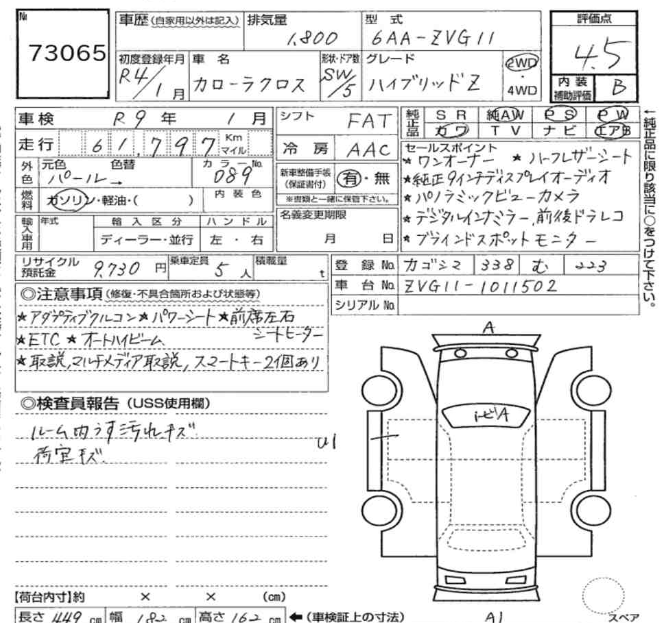 № 73065
車歴(自家用以外は記入) 排気量 1,800 型式 6AA-ZVG11
評価点 4.5
内装補助評価 B
初度登録年月 R4/1月 車名 カローラクロス 形状・ドア数 SW/5 グレード ハイブリッドZ 2WD・4WD
車検 R9年 1月 シフト FAT
純正品 SR 純AW PS PW
カワ TV ナビ エアB
走行 61,797 Km マイル 冷房 AAC
外色 元色 パール 色替 → カラーNo. 089
燃料 ガソリン・軽油・( ) 内装色
新車整備手帳(保証書付) 有・無
※書類と一緒に保管下さい。
輸入車用 年式 輸入区分 ディーラー・並行 ハンドル 左・右
名義変更期限 月 日
セールスポイント
★ワンオーナー ★ハーフレザーシート
★純正9インチディスプレイオーディオ
★パノラミックビューカメラ
★デジタルインナーミラー,前後ドラレコ
★ブラインドスポットモニター
←純正品に限り該当に○をつけて下さい。
リサイクル預託金 9,730円 乗車定員 5人 積載量 t
登録No. カゴシマ 338 む 223
車台No. ZVG11-1011502
シリアルNo.
◎注意事項(修復・不具合箇所および状態等)
★アダプティブクルコン ★パワーシート ★前席左右シートヒーター
★ETC ★オートハイビーム
★取説,マルチメディア取説,スマートキー2個あり
◎検査員報告(USS使用欄)
ルーム内うす汚れキズ
荷室キズ
A
U1
A1
スペア
【荷台内寸】約 × × (cm)
長さ 449cm 幅 182cm 高さ 162cm ←(車検証上の寸法)